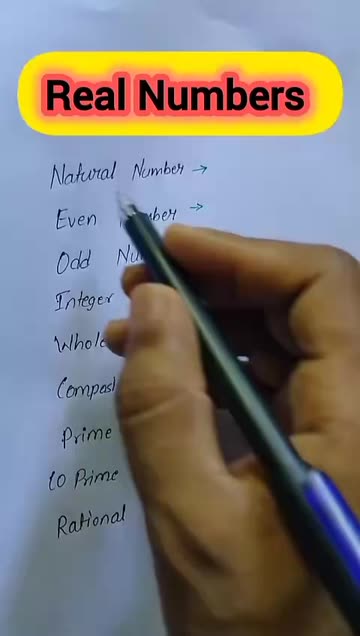 Real Numbers
Natural Number →
Even Number →
Odd
Integer
Whole
Prime
Co Prime
Rational